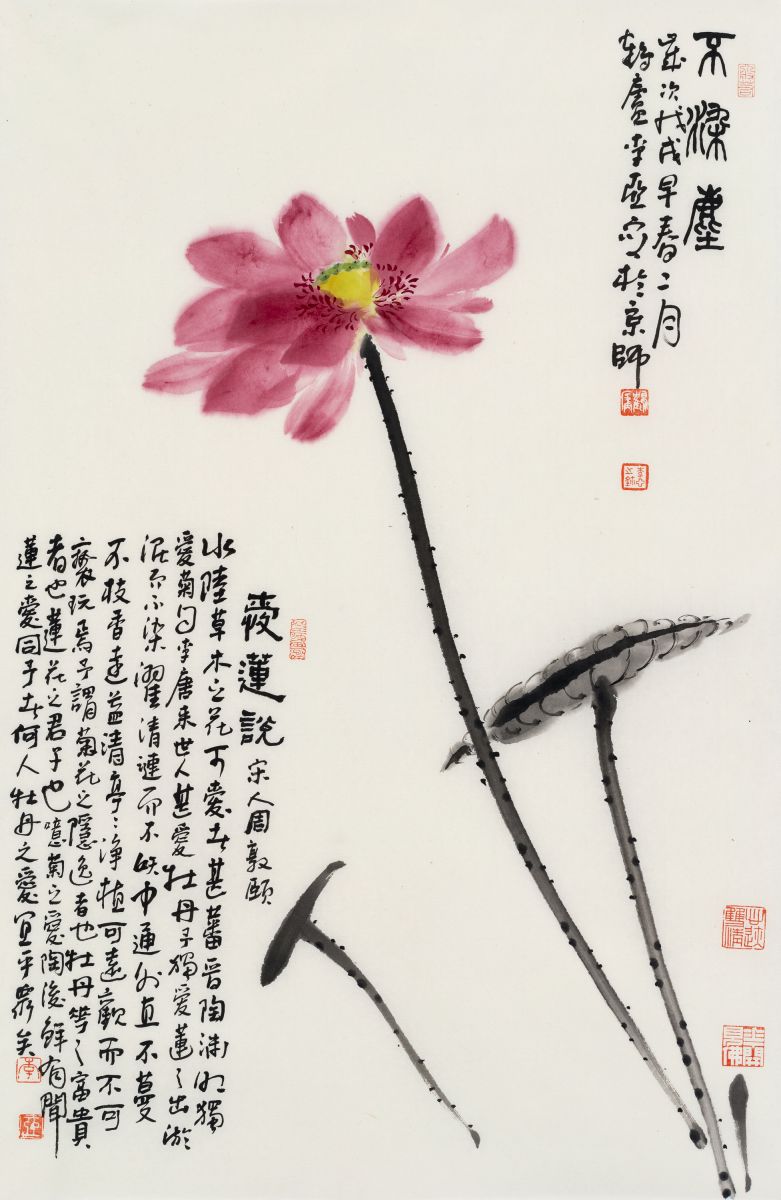 不染塵
歲次戊戌早春二月
鶴廬李亞寫於京師
愛蓮說 宋人周敦頤
水陸草木之花可愛者甚蕃晉陶淵明獨
愛菊自李唐來世人甚愛牡丹予獨愛蓮之出淤
泥而不染濯清漣而不妖中通外直不蔓
不枝香遠益清亭〻淨植可遠觀而不可
褻玩焉予謂菊花之隱逸者也牡丹花之富貴
者也蓮花之君子也噫菊之愛陶後鮮有聞
蓮之愛同予者何人牡丹之愛宜乎眾矣
李
亞